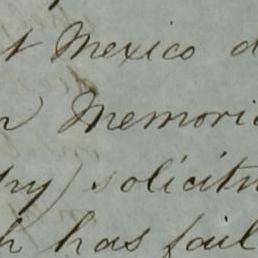 t Mexico d
n Memoria
hy) solicitu
h has fail